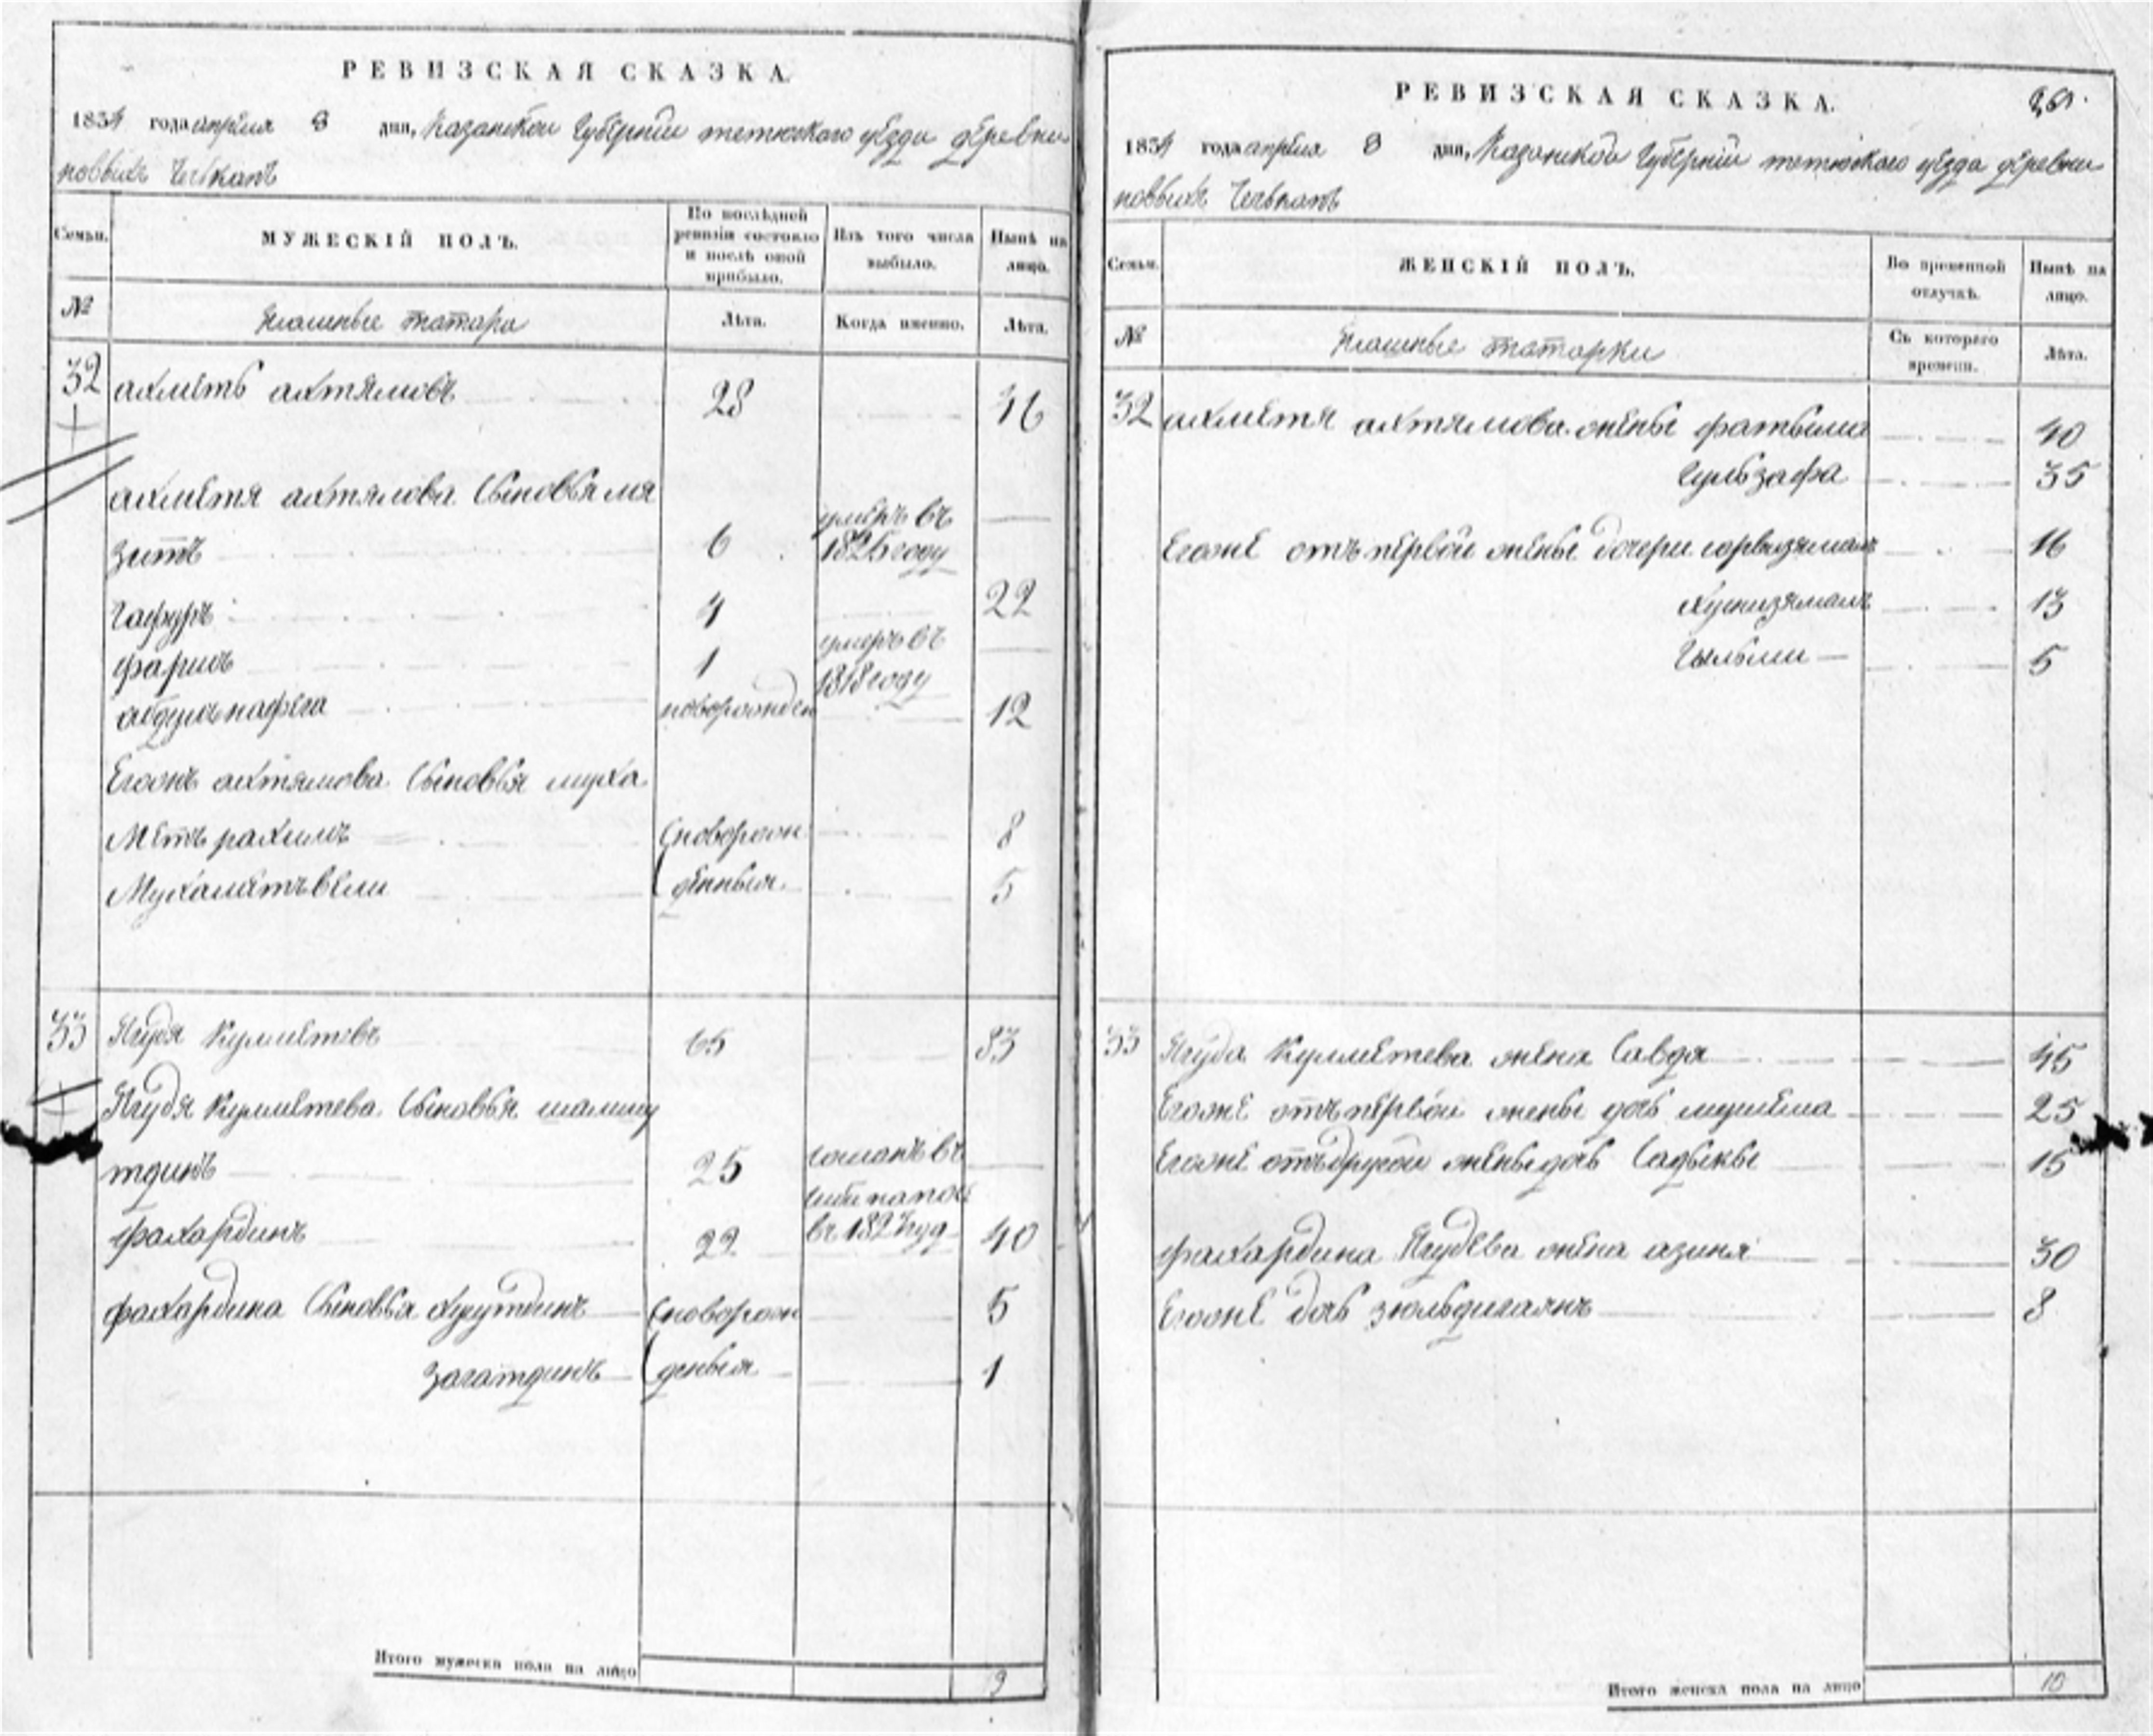 РЕВИЗСКАЯ СКАЗКА.
1834 года апреля 8 дня, Казанской Губернии тетюского уезда деревни
новыхъ
Семьи.
МУЖЕСКІЙ ПОЛЪ.
По послѣдней ревизіи состояло и послѣ оной прибыло.
Изъ того числа выбыло.
Нынѣ на лицо.
№
татара
Лѣта.
Когда именно.
Лѣта.
32 ахметь ахтямовъ 28 46
ахметя ахтямова сыновья мя
зитъ 6 умеръ въ 1825 году
гафуръ 4 22
фариль 1 умеръ въ 1818 году
абдулнафега новорожден 12
Егожъ ахтямова сыновья муха
Метъ рахимъ (новорож 8
Мухаметъвели (денныя 5
33 Ягудя Кулметевъ 65 83
Ягудя Кулметева сыновья шаммy
тдинъ 25 сосланъ въ
въ 1827 году
фахардинъ 22 40
фахардина сыновья (новорож 5
загатдинъ (деныя 1
Итого мужеска пола на лицо 9
РЕВИЗСКАЯ СКАЗКА.
1834 года апреля 8 дня, Казанской Губернии тетюского уезда деревни
новыхъ
Семьи.
ЖЕНСКІЙ ПОЛЪ.
Во временной отлучкѣ.
Нынѣ на лицо.
№
татарки
Съ котораго времени.
Лѣта.
32 ахметя ахтямова жены фатыма 40
Гульзафа 35
Егоже отъ первой жены дочери 16
Хуснизямалъ 13
5
33 Ягуда Кулметева жена Савда 45
Егоже отъ первой жены дочь 25
Егоже отъ другой жены дочь Садыкы 15
фахардина Ягудева жена азиня 30
Егоже дочь 8
Итого женска пола на лицо 10